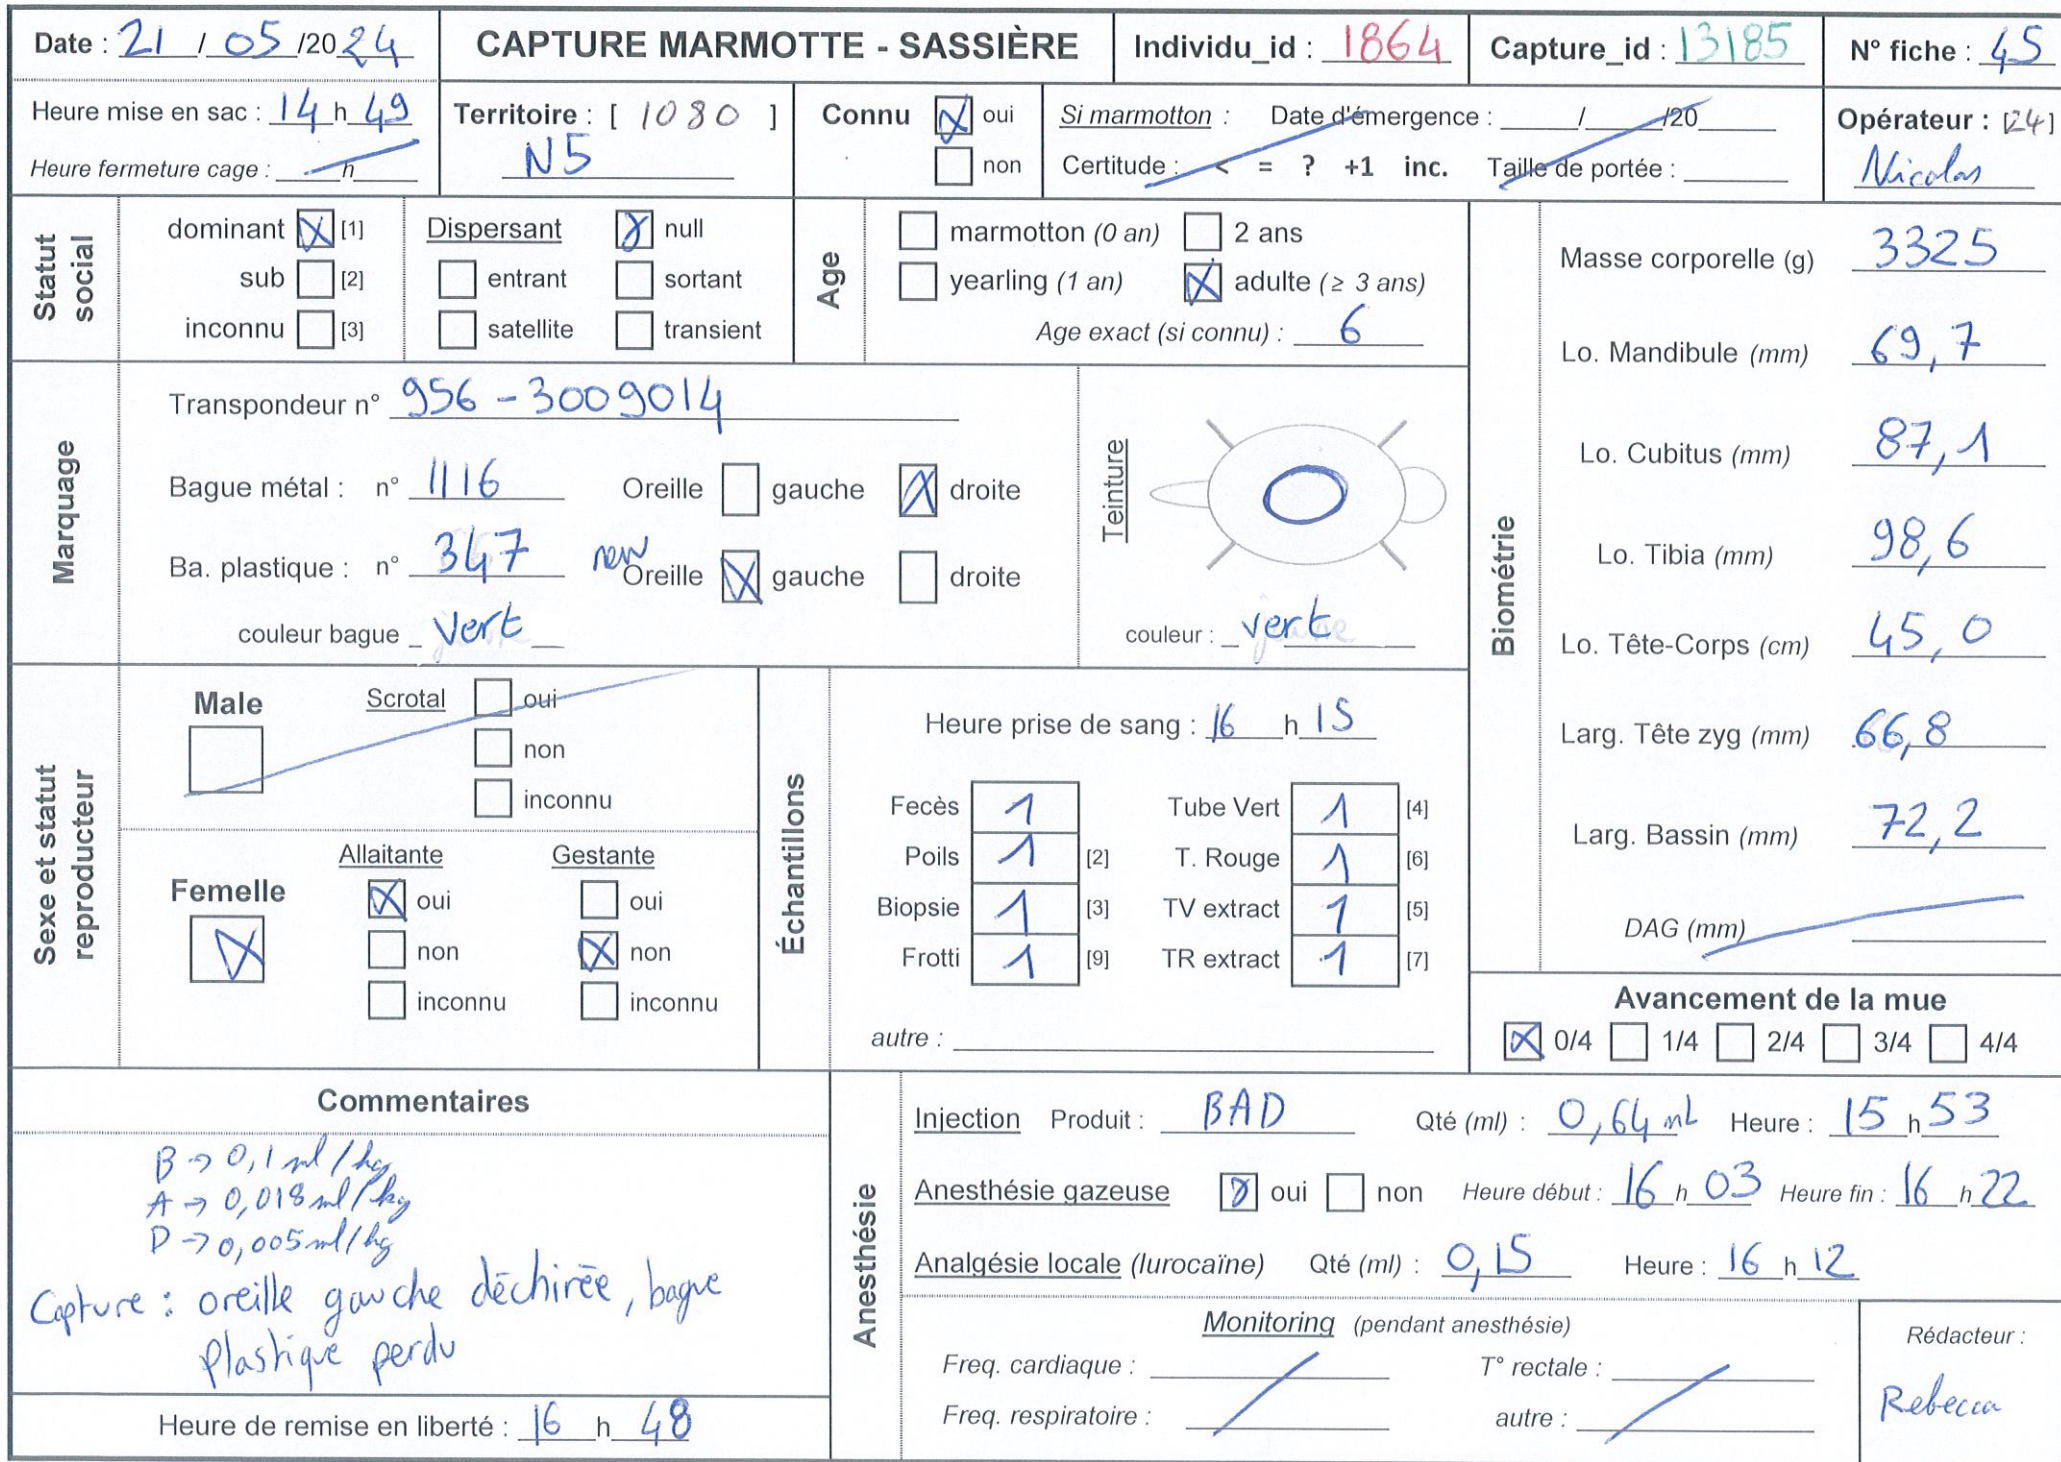 Date : 21 / 05 /2024
CAPTURE MARMOTTE - SASSIÈRE
Individu_id : 1864
Capture_id : 13185
N° fiche : 45
Heure mise en sac : 14 h 49
Heure fermeture cage : h
Territoire : [ 1080 ]
N5
Connu oui
non
Si marmotton : Date d'émergence : / /20
Certitude : < = ? +1 inc. Taille de portée :
Opérateur : [24]
Nicolas
Statut social
dominant [1]
sub [2]
inconnu [3]
Dispersant null
entrant sortant
satellite transient
Age
marmotton (0 an) 2 ans
yearling (1 an) adulte (≥ 3 ans)
Age exact (si connu) : 6
Marquage
Transpondeur n° 956-3009014
Bague métal : n° 1116 Oreille gauche droite
Ba. plastique : n° 347 new Oreille gauche droite
couleur bague vert
Teinture
couleur : vert
Biométrie
Masse corporelle (g) 3325
Lo. Mandibule (mm) 69,7
Lo. Cubitus (mm) 87,1
Lo. Tibia (mm) 98,6
Lo. Tête-Corps (cm) 45,0
Larg. Tête zyg (mm) 66,8
Larg. Bassin (mm) 72,2
DAG (mm)
Sexe et statut reproducteur
Male Scrotal oui
non
inconnu
Femelle
Allaitante Gestante
oui oui
non non
inconnu inconnu
Échantillons
Heure prise de sang : 16 h 15
Fecès 1 Tube Vert 1 [4]
Poils 1 [2] T. Rouge 1 [6]
Biopsie 1 [3] TV extract 1 [5]
Frotti 1 [9] TR extract 1 [7]
autre :
Avancement de la mue
0/4 1/4 2/4 3/4 4/4
Commentaires
B → 0,1 ml/kg
A → 0,018 ml/kg
D → 0,005 ml/kg
Capture : oreille gauche déchirée, bague
plastique perdu
Heure de remise en liberté : 16 h 48
Anesthésie
Injection Produit : BAD Qté (ml) : 0,64 mL Heure : 15 h 53
Anesthésie gazeuse oui non Heure début : 16 h 03 Heure fin : 16 h 22
Analgésie locale (lurocaïne) Qté (ml) : 0,15 Heure : 16 h 12
Monitoring (pendant anesthésie)
Freq. cardiaque : T° rectale :
Freq. respiratoire : autre :
Rédacteur :
Rebecca